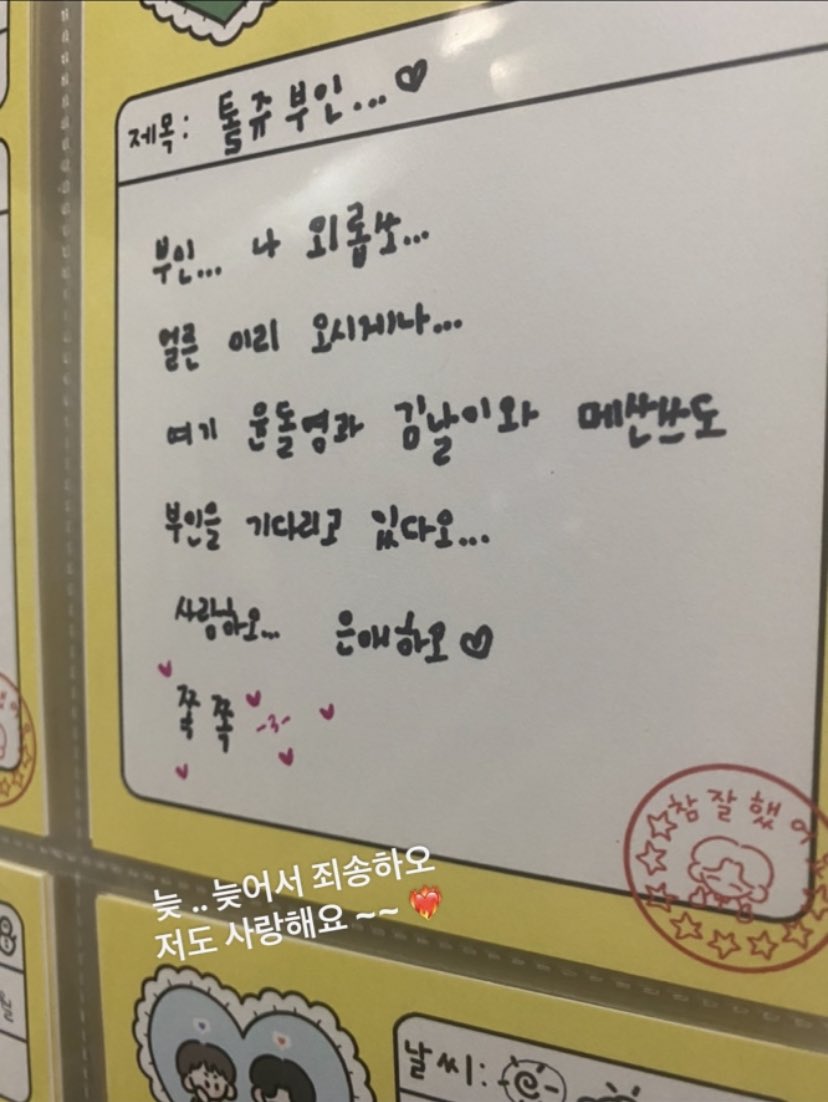 제목: 톨쥬부인...♡
부인... 나 외롭소...
얼른 이리 오시게나...
여기 윤돌영과 김날이와 메산쓰도
부인을 기다리고 있다오...
사랑하오... 은애하오♡
쪽쪽 -3-
참 잘했어
늦 .. 늦어서 죄송하오
저도 사랑해요 ~~ ❤️‍🔥
날씨: